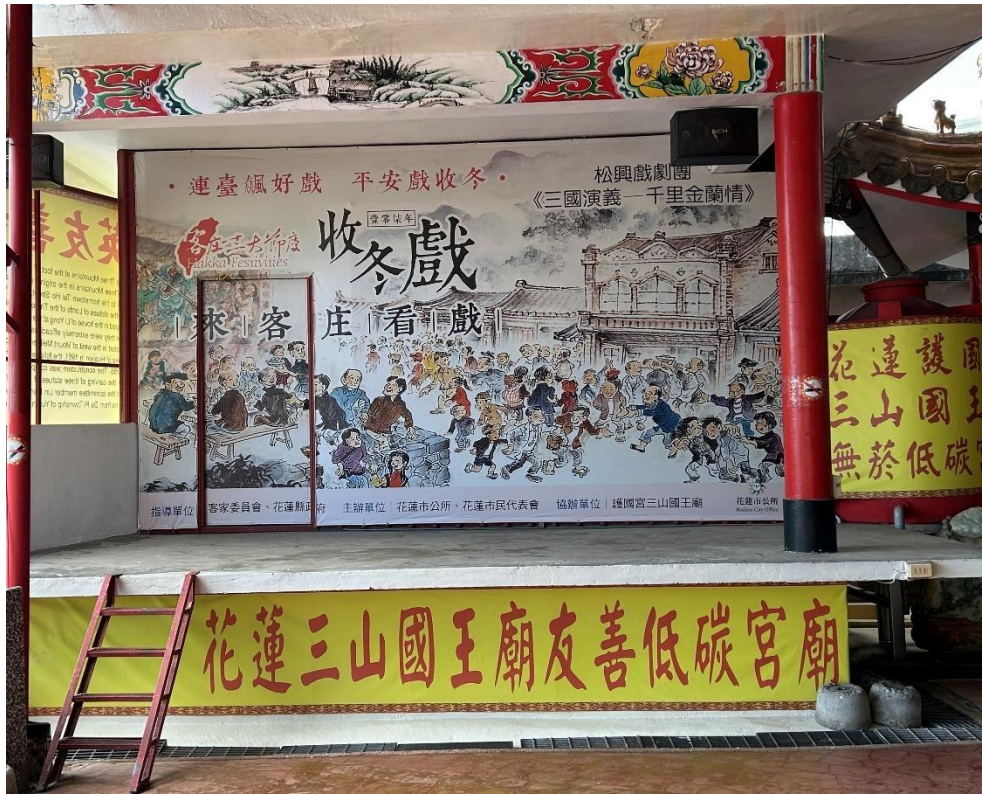 •連臺飆好戲 平安戲收冬•
松興戲劇團
《三國演義—千里金蘭情》
壹零柒年
客庄十二大節慶
Hakka Festivities
收冬戲
來|客|庄|看|戲
指導單位|客家委員會、花蓮縣政府 主辦單位|花蓮市公所、花蓮市民代表會 協辦單位|護國宮三山國王廟
花蓮市公所
Hualien City Office
花蓮護國
三山國王
無菸低碳宮
花蓮三山國王廟友善低碳宮廟